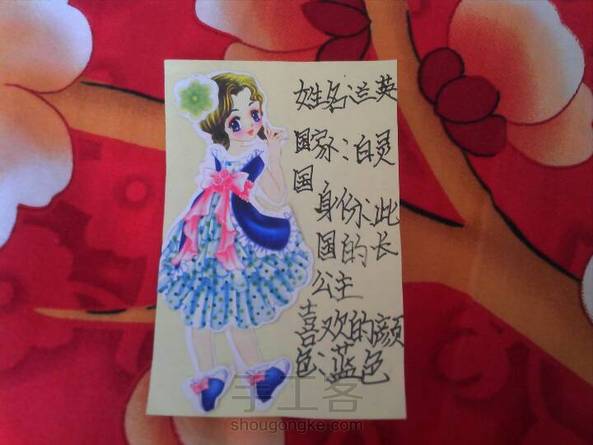 姓名:兰英
国家:泊灵
国
身份:此
国的长
公主
喜欢的颜
色:蓝色
手工客
shougongke.com